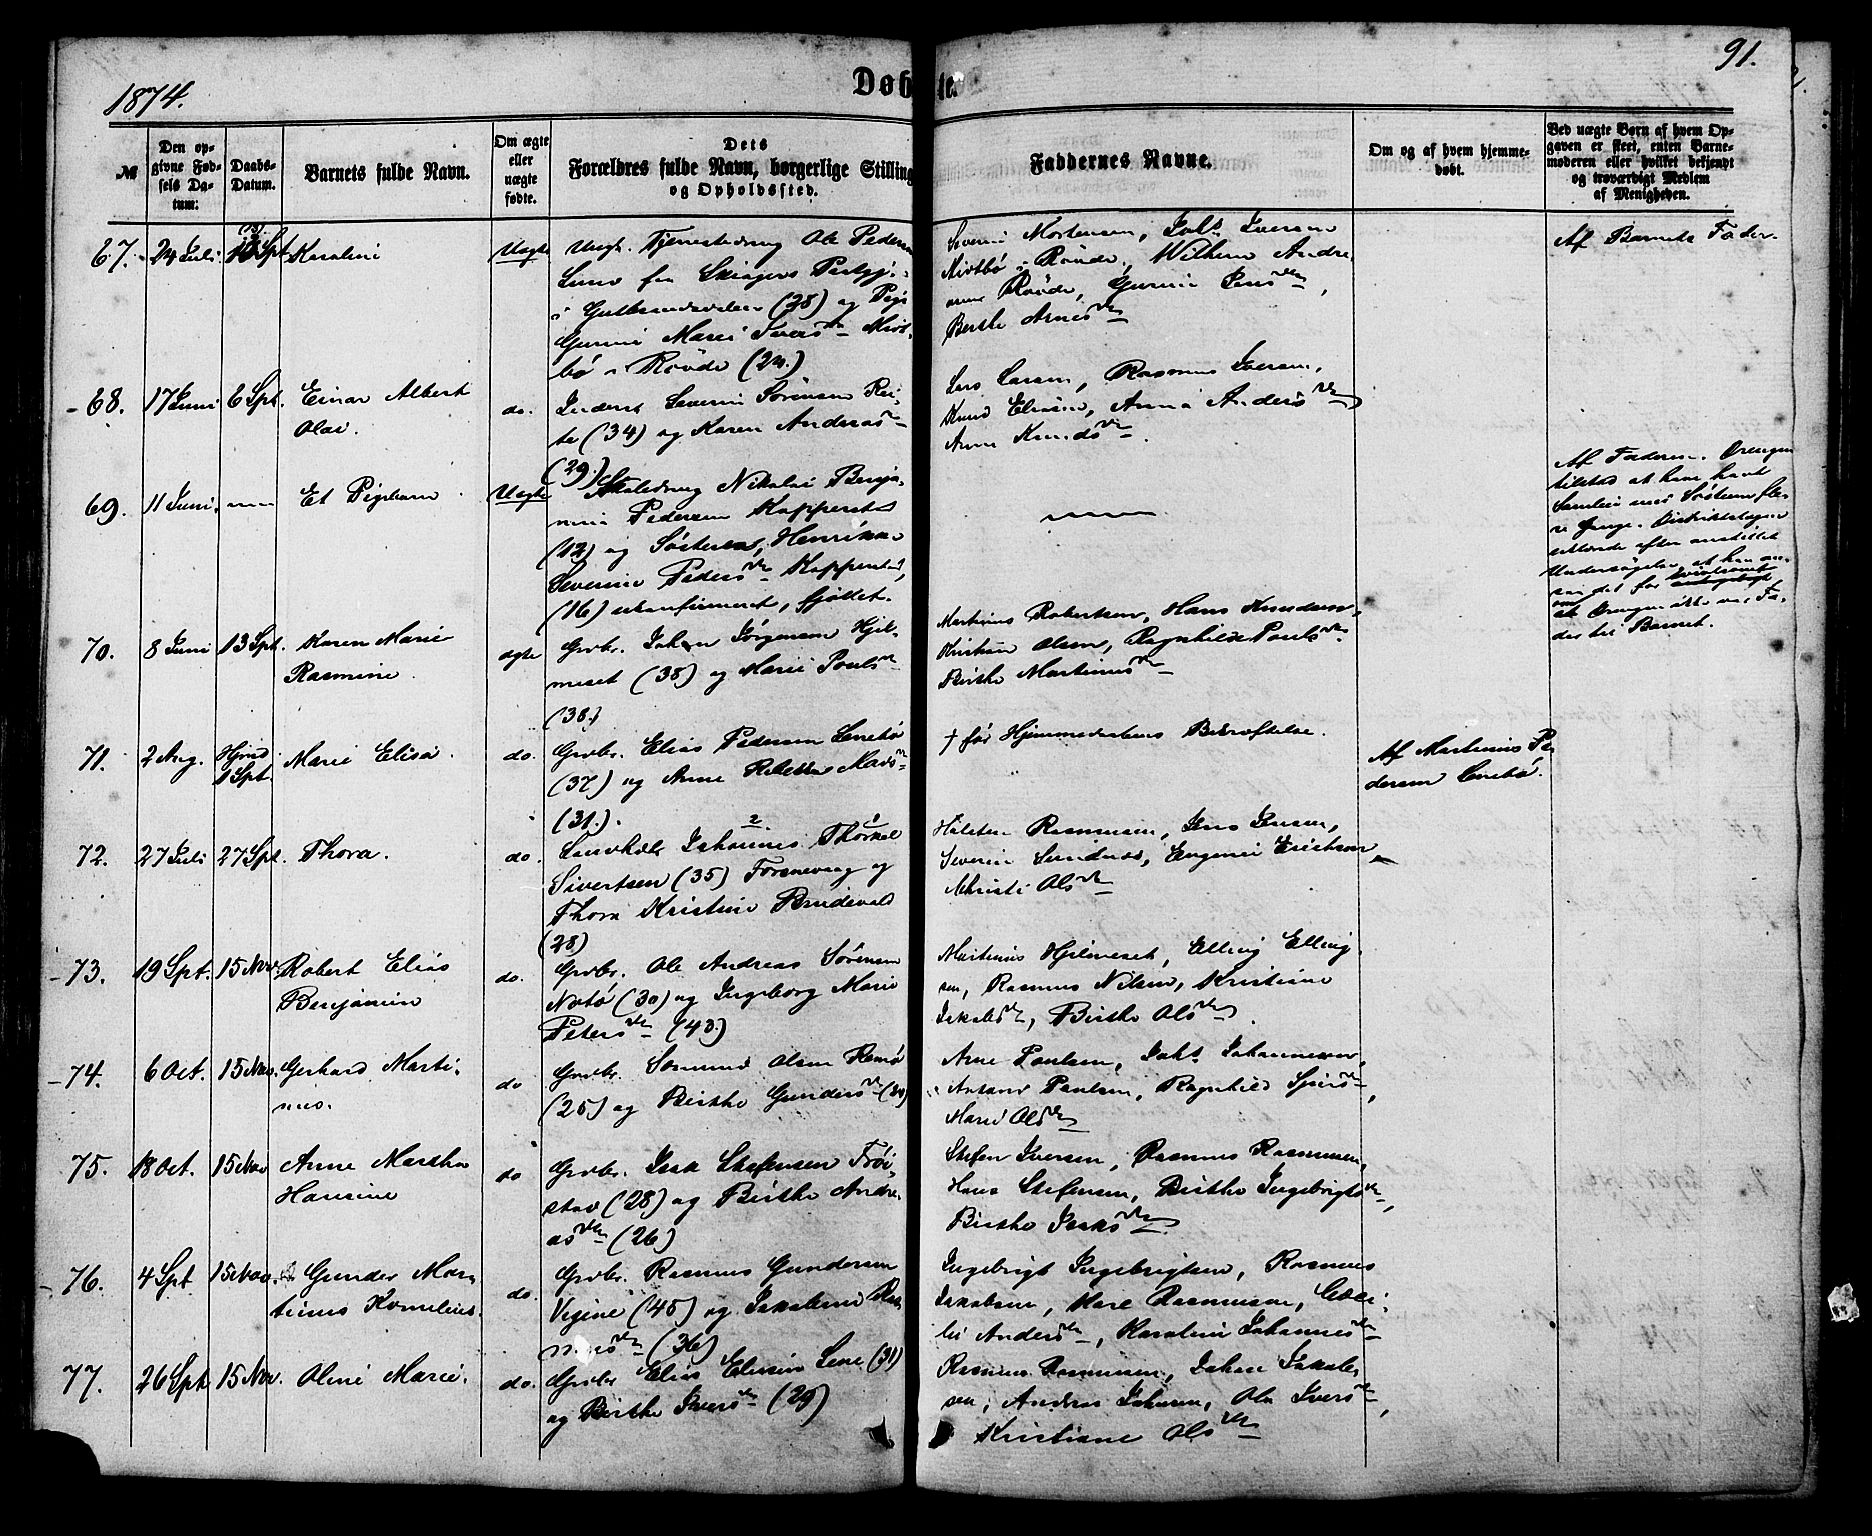 1874.
Døbte.
91.
№
Den opgivne Fødsels Datum:
Daabs-Datum.
Barnets fulde Navn.
Om ægte eller uægte fødte.
Dets Forældres fulde Navn, borgerlige Stilling og Opholdssted.
Faddernes Navne.
Om og af hvem hjemmedøbt.
Ved uægte Børn af hvem Opgaven er skeet, enten Barnemoderen eller hvilket bekjendt og troværdigt Medlem af Menigheden.
67. 24 Juli Sept. Karoline Uægte Ungk. Tjenestedreng Ole Pedersen
fra Skiagers Prestgj.
i Gulbrandsdalen (28) og Pige
Gurine Marie Ivers dtr
bø i Røvde (24.)
Severin Mortensen, Joht. Iversen
i Røvde, Wilhelm Andre
Røvde, Gurine Jens dtr,
Berthe Arnes dtr
Af Barnets Fader.
68. 17 Juni 6 Spt. Einar Albert
Olai.
do. Inderst Severin Sørensen Rei-
te (34) og Karen Andreas-
(29.)
Lars Larsen, Rasmus Iversen,
Knud Eliasen, Anna Anders dtr
Anne Knuds dtr.
69. 11 Juni, Et Pigebarn. Uægte Skoledreng Nikolai Benja-
min Pedersen Kopperst
(12) og Søsteren, Henrikke
Severine Peders dtr Kopperstad,
(16) ukonfirmeret, født.
Af Faderen. Drengen
tilstod at han havt
Samleie med Søsteren fle-
re Gange. Distriktslægen
erklærede efter anstillet
Undersøgelse, at han an-
saa det for
at Drengen ikke var Fa-
der til Barnet.
70. 8 Juni 13 Spt. Karen Marie
Rasmine.
ægte Grdbr. Johan Jørgensen Hjel-
meset (38) og Marie Pouls dtr
(38.)
Martinus Robertsen, Hans Knudsen,
Kristian Olsen, Ragnhild Pouls dtr
Birthe Martinus dtr
71. 2 Aug. Hjmd
1 Spt. Marie Elisa. do. Grdbr. Elias Pedersen Lenebø
(37) og Anne Rebekka Mads-
(31.).
† før Hjemmedaabens Bekræftelse.
Af Martinus Pe-
dersen Lenebø.
72. 27 Juli 27 Spt. Thora. do. Landhdlr Johannes Thorkel
Sivertsen (35) Forsnevaag og
Thora Kristine Brudevold
(28)
Rasmussen, Jens Jensen,
Severin Sundnæs, Eugenie Erichsen,
Christi Ols dtr
73. 19 Spt. 15 Nov. Robert Elias
Benjamin do. Grdbr. Ole Andreas Sørensen
Notø (30) og Ingeborg Marie
Peters dtr (43.)
Martinus Hjelmeset, Elling Elling-
sen, Rasmus Nilsen, Kristine
Jakobs dtr, Birthe Ols dtr.
74. 6 Oct. 15 Nov. Gerhard Marti-
nus. do Grdbr. Somund Olsen Remø
(25) og Birthe Gunders dtr
Arne Paulsen, Joht. Johannesen,
Antone Paulsen, Ragnhild Sjurs dtr,
Marie Ols dtr
75. 18 Oct. 15 Nov Anne Martha
Hansine do Grdbr. Isak Stefensen Frøi-
stad (28) og Birthe Andre-
as dtr (26)
Stefen Iversen, Rasmus Rasmussen,
Hans Stefensen, Birthe Ingebrigts dtr,
Birthe Isaks dtr
76. 4 Spt. 15 Nov. Gunder Mar-
tinus Kornelius. do. Grdbr. Rasmus Gundersen
Vegine (45) og Jakobine Ras-
mus dtr (36)
Ingebrigt Ingebrigtsen, Rasmus
Jakobsen, Karl Rasmussen, Ceci-
lie Anders dtr, Karoline Johannes dtr
77. 26 Spt. 15 Nov. Oline Marie. do. Grdbr Elias Eliasen Lene (31)
og Birthe Ivers dtr (29)
Rasmus Rasmussen, Johan Jakob-
sen, Andreas Johnsen, Ole Ivers dtr,
Kristiane Ols dtr